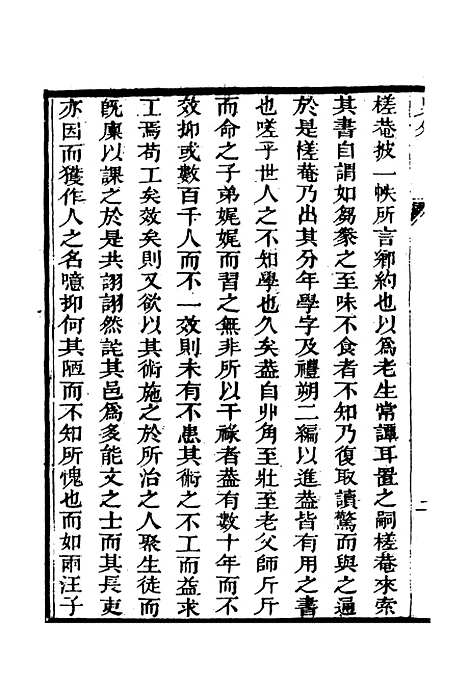 槎菴披一帙所言鄉約也以爲老生常譚耳置之嗣槎菴來索
其書自謂如芻豢之至味不食者不知乃復取讀驚而與之遍
於是槎菴乃出其分年學字及禮朔二編以進葢皆有用之書
也嗟乎世人之不知學也久矣葢自丱角至壯至老父師斤斤
而命之子弟娓娓而習之無非所以干祿者葢有數十年而不
效抑或數百千人而不一效則未有不患其術之不工而益求
工焉苟工矣效矣則又欲以其術施之於所治之人聚生徒而
旣廩以課之於是共詡詡然詫其邑爲多能文之士而其長吏
亦因而獲作人之名噫抑何其陋而不知所愧也而如雨汪子
二